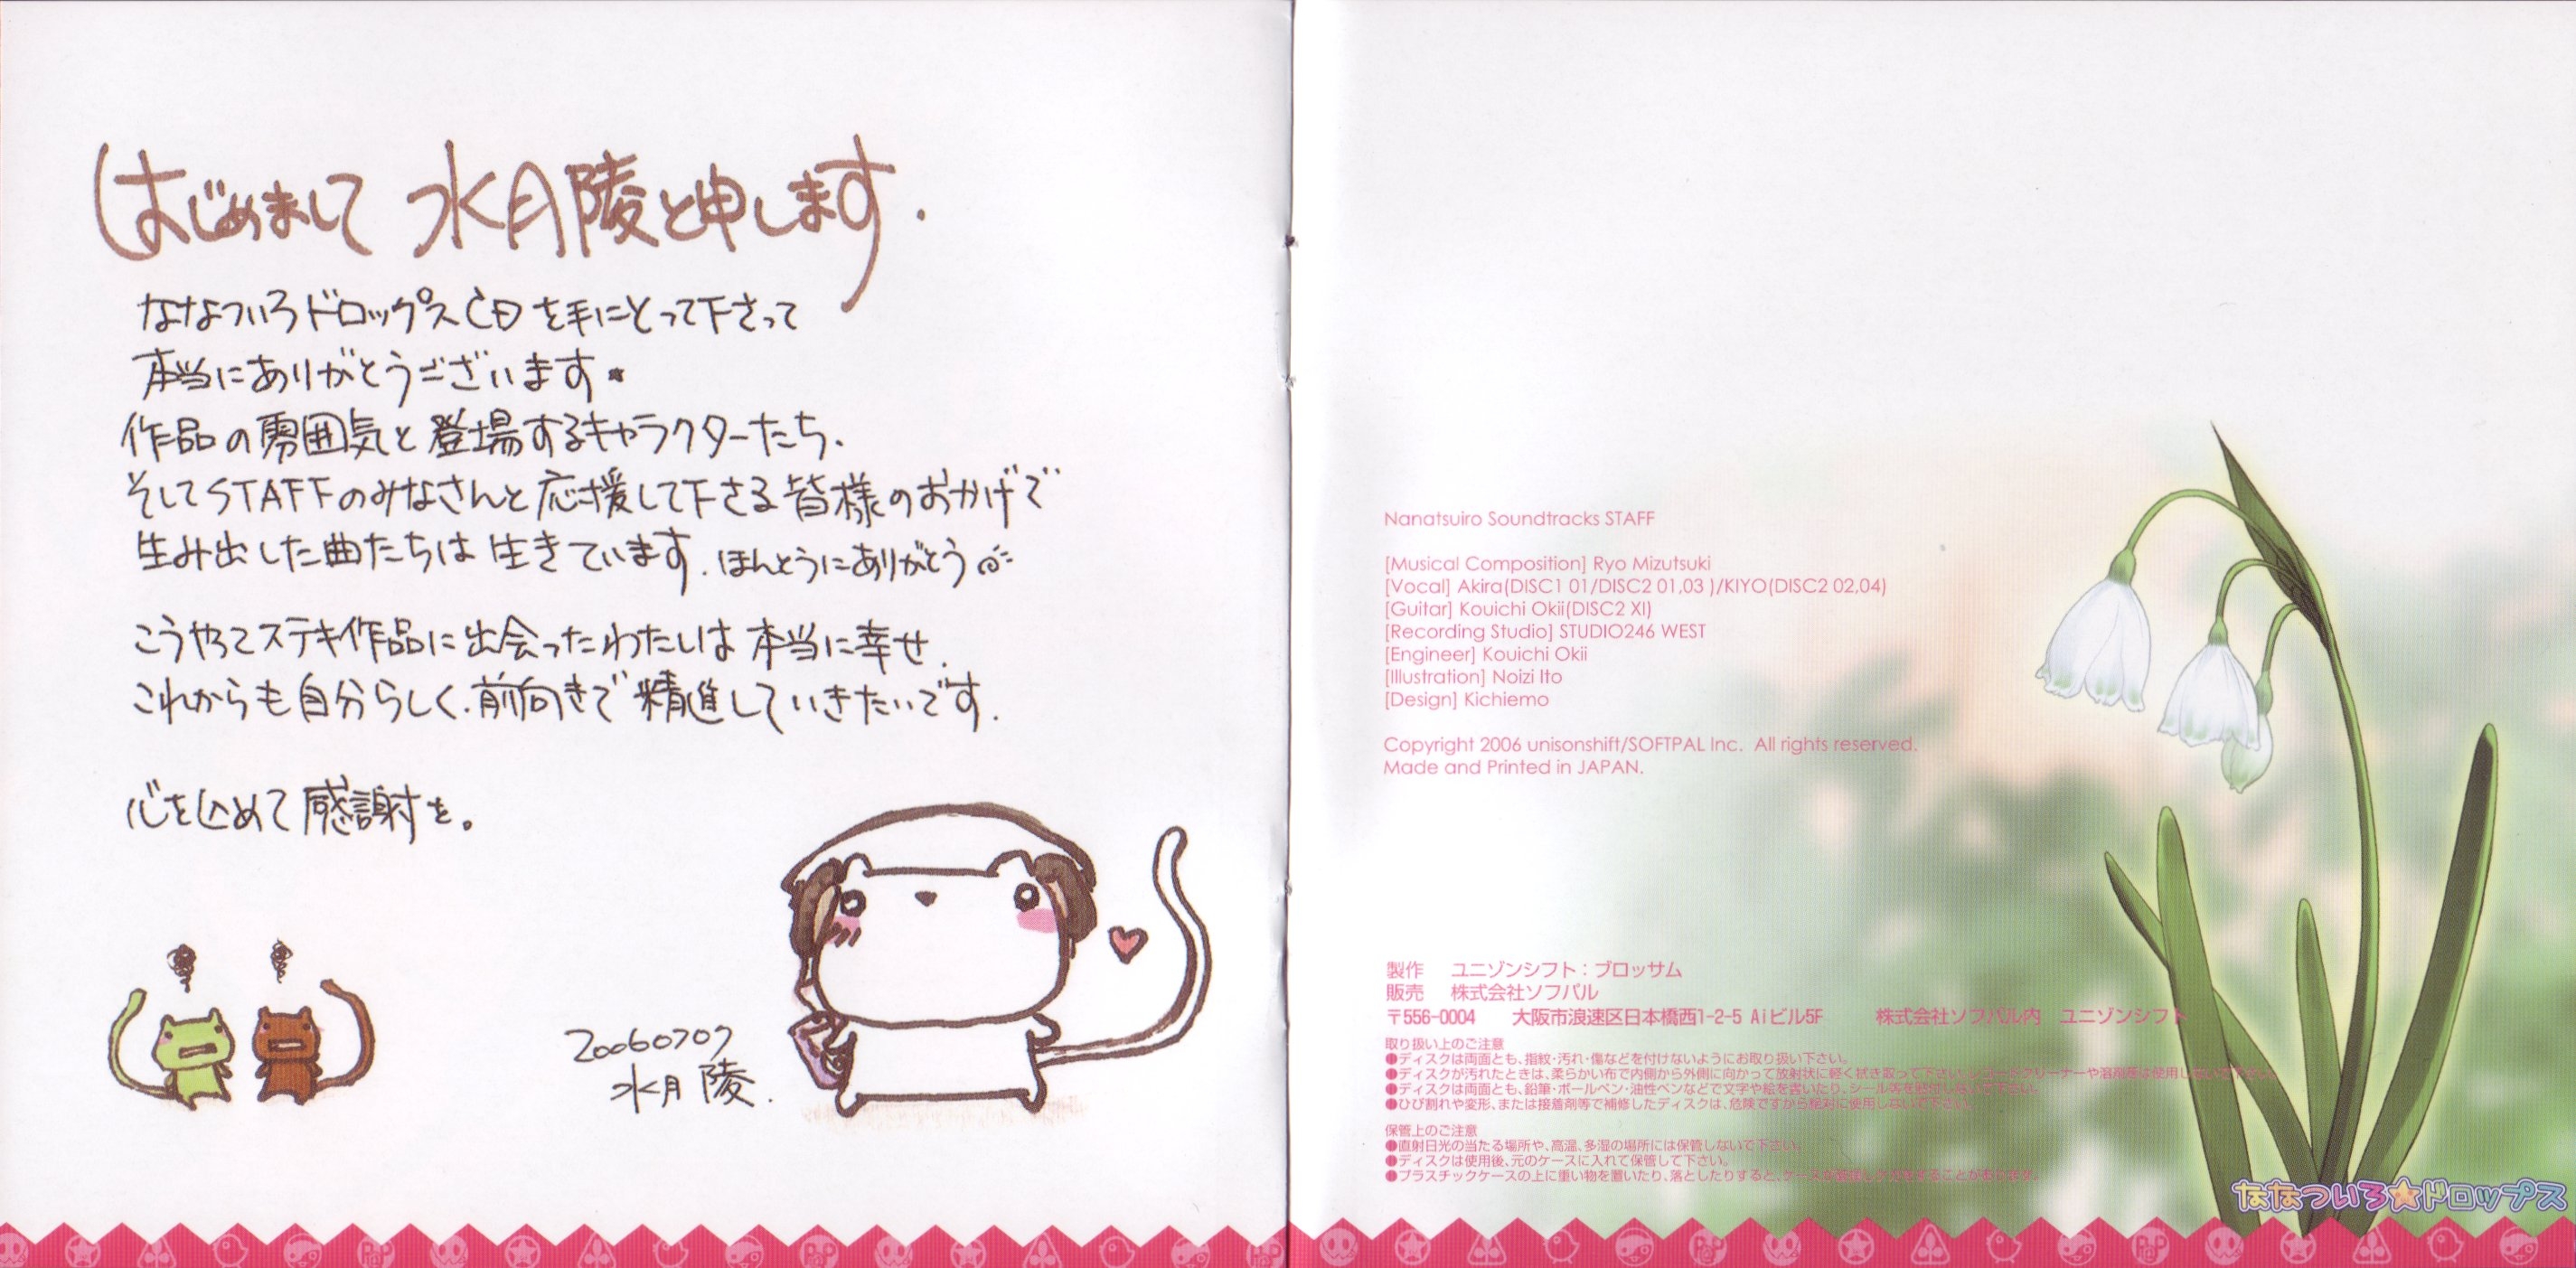 はじめまして 水月陵と申します.
ななついろドロップスCDを手にとって下さって
本当にありがとうございます★
作品の雰囲気と登場するキャラクターたち、
そしてSTAFFのみなさんと応援して下さる皆様のおかげで
生み出した曲たちは生きています. ほんとうにありがとう
こうやってステキ作品に出会ったわたしは本当に幸せ.
これからも自分らしく、前向きで精進していきたいです.
心を込めて感謝を。
20060707
水月陵.
Nanatsuiro Soundtracks STAFF
[Musical Composition] Ryo Mizutsuki
[Vocal] Akira(DISC1 01/DISC2 01,03 )/KIYO(DISC2 02,04)
[Guitar] Kouichi Okii(DISC2 XI)
[Recording Studio] STUDIO246 WEST
[Engineer] Kouichi Okii
[Illustration] Noizi Ito
[Design] Kichiemo
Copyright 2006 unisonshift/SOFTPAL Inc. All rights reserved.
Made and Printed in JAPAN.
製作 ユニゾンシフト：ブロッサム
販売 株式会社ソフパル
〒556-0004 大阪市浪速区日本橋西1-2-5 Aiビル5F 株式会社ソフパル内 ユニゾンシフト
取り扱い上のご注意
●ディスクは両面とも、指紋・汚れ・傷などを付けないようにお取り扱い下さい。
●ディスクが汚れたときは、柔らかい布で内側から外側に向かって放射状に軽く拭き取って下さい。レコードクリーナーや溶剤等は使用しないで下さい。
●ディスクは両面とも、鉛筆・ボールペン・油性ペンなどで文字や絵を書いたり、シール等を貼付しないで下さい。
●ひび割れや変形、または接着剤等で補修したディスクは、危険ですから絶対に使用しないで下さい。
保管上のご注意
●直射日光の当たる場所や、高温、多湿の場所には保管しないで下さい。
●ディスクは使用後、元のケースに入れて保管して下さい。
●プラスチックケースの上に重い物を置いたり、落としたりすると、ケースが
ななついろ★ドロップス